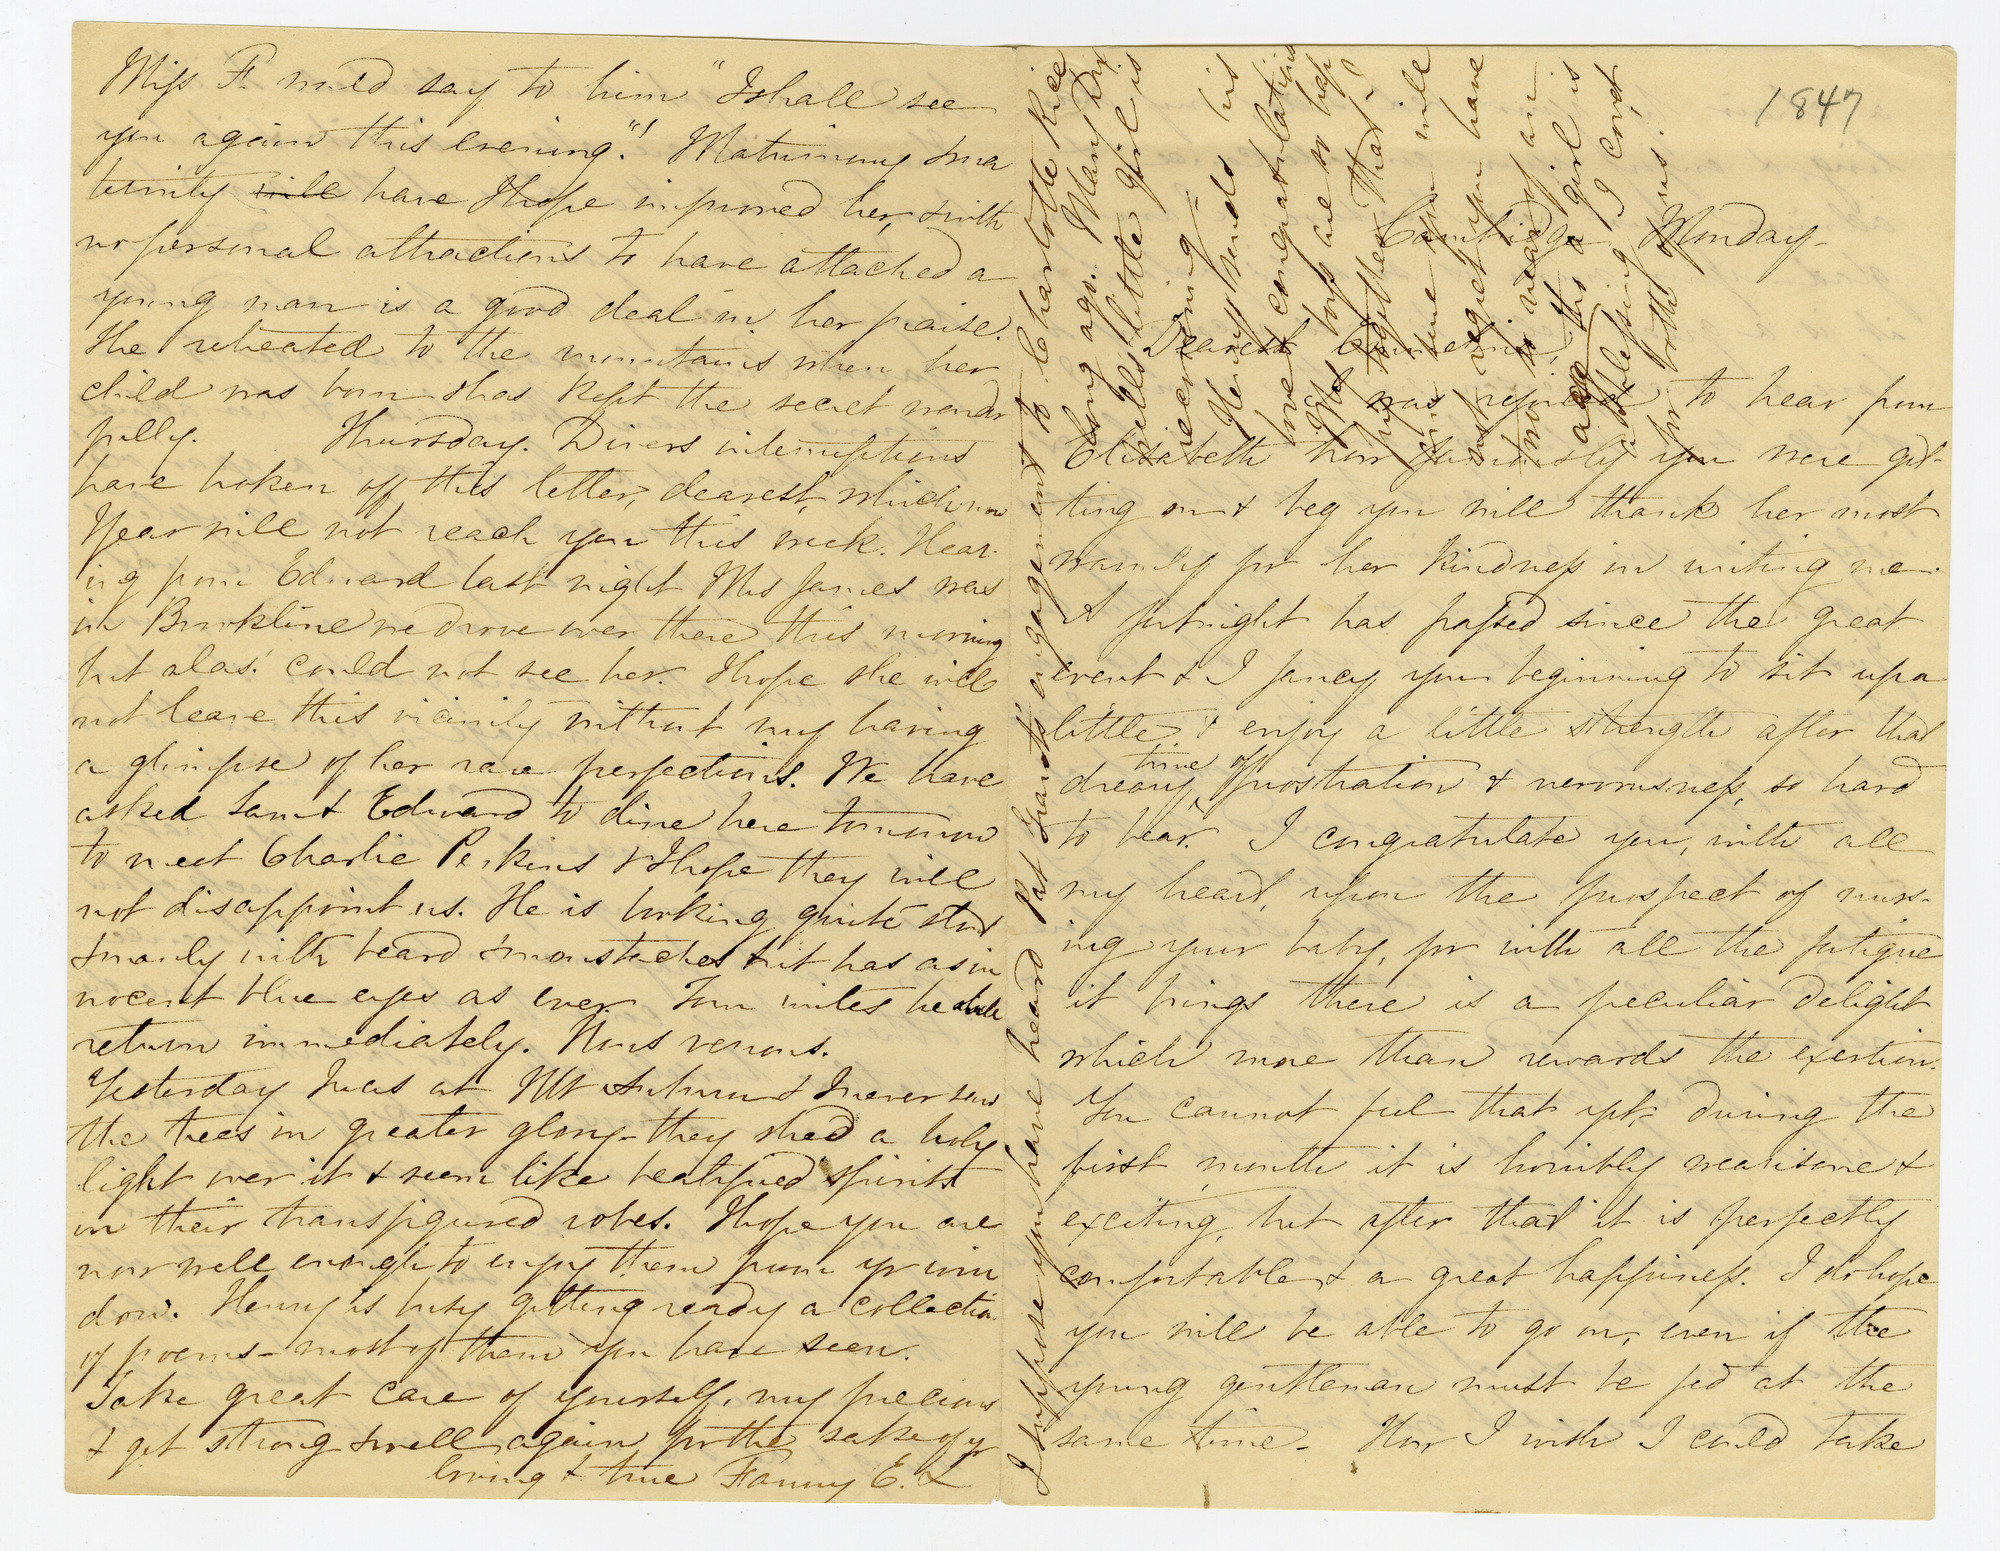 1847
Cambridge Monday-
Dearest Emmeline,
I was rejoiced to hear from
Elizabeth how famously you were get-
ting on & beg you will thank her most
warmly for her kindness in writing me.
A fortnight has passed since the great
event & I fancy you beginning to sit up a
little & enjoy a little strength after that
dreary time of prostration & nervousness, so hard
to bear. I congratulate you, with all
my heart, upon the prospect of nurs-
ing your baby, for with all the fatigue
it brings there is a peculiar delight
which more than rewards the exertion.
You cannot feel that yet, during the
first month it is horribly wearisome &
exciting, but after that it is perfectly
comfortable & a great happiness. I do hope
you will be able to go on, even if the
young gentleman must be fed at the
same time. How I wish I could take
Miss F. would say to him "I shall see
you again this evening."! Matrimony & ma
ternity will have I hope improved her, & with
no personal attractions to have attached a
young man is a good deal in her praise.
She retreated to the mountains when her
child was born & has kept the secret wonder
fully. Thursday. Divers interruptions
have broken off this letter, dearest, which now
I fear will not reach you this week. Hear-
ing from Edward last night Mrs James was
in Brookline we drove over there this morning
but alas! could not see her. I hope she will
not leave this vicinity without my having
a glimpse of her rare perfections. We have
asked Sam & Edward to dine here tomorrow
to meet Charlie Perkins & I hope they will
not disappoint us. He is looking quite stout
& manly with beard & moustaches but has as in
nocent blue eyes as ever. Tom writes he shall
return immediately. Nous verrons.
Yesterday I was at Mt Auburn & I never saw
the trees in greater glory- they shed a holy
light over it & seem like beatified spirits
in their transfigured robes. I hope you are
now well enough to enjoy them from yr win
dow. Henry is busy getting ready a collection
of poems- most of them you have seen.
Take great care of yourself, my precious
& get strong & well again for the sake of yr
loving & true Fanny E. L
I suppose you have heard Pat Grant's engagement to Charlotte Rice
long ago. Mary Dix-
well's little girl is
recovering-
Henry sends his
love & congratulations
Our boys are so hap
py together that I
am sure you will
not regret you have
no
a girl is
a blessing I cond
for both us.